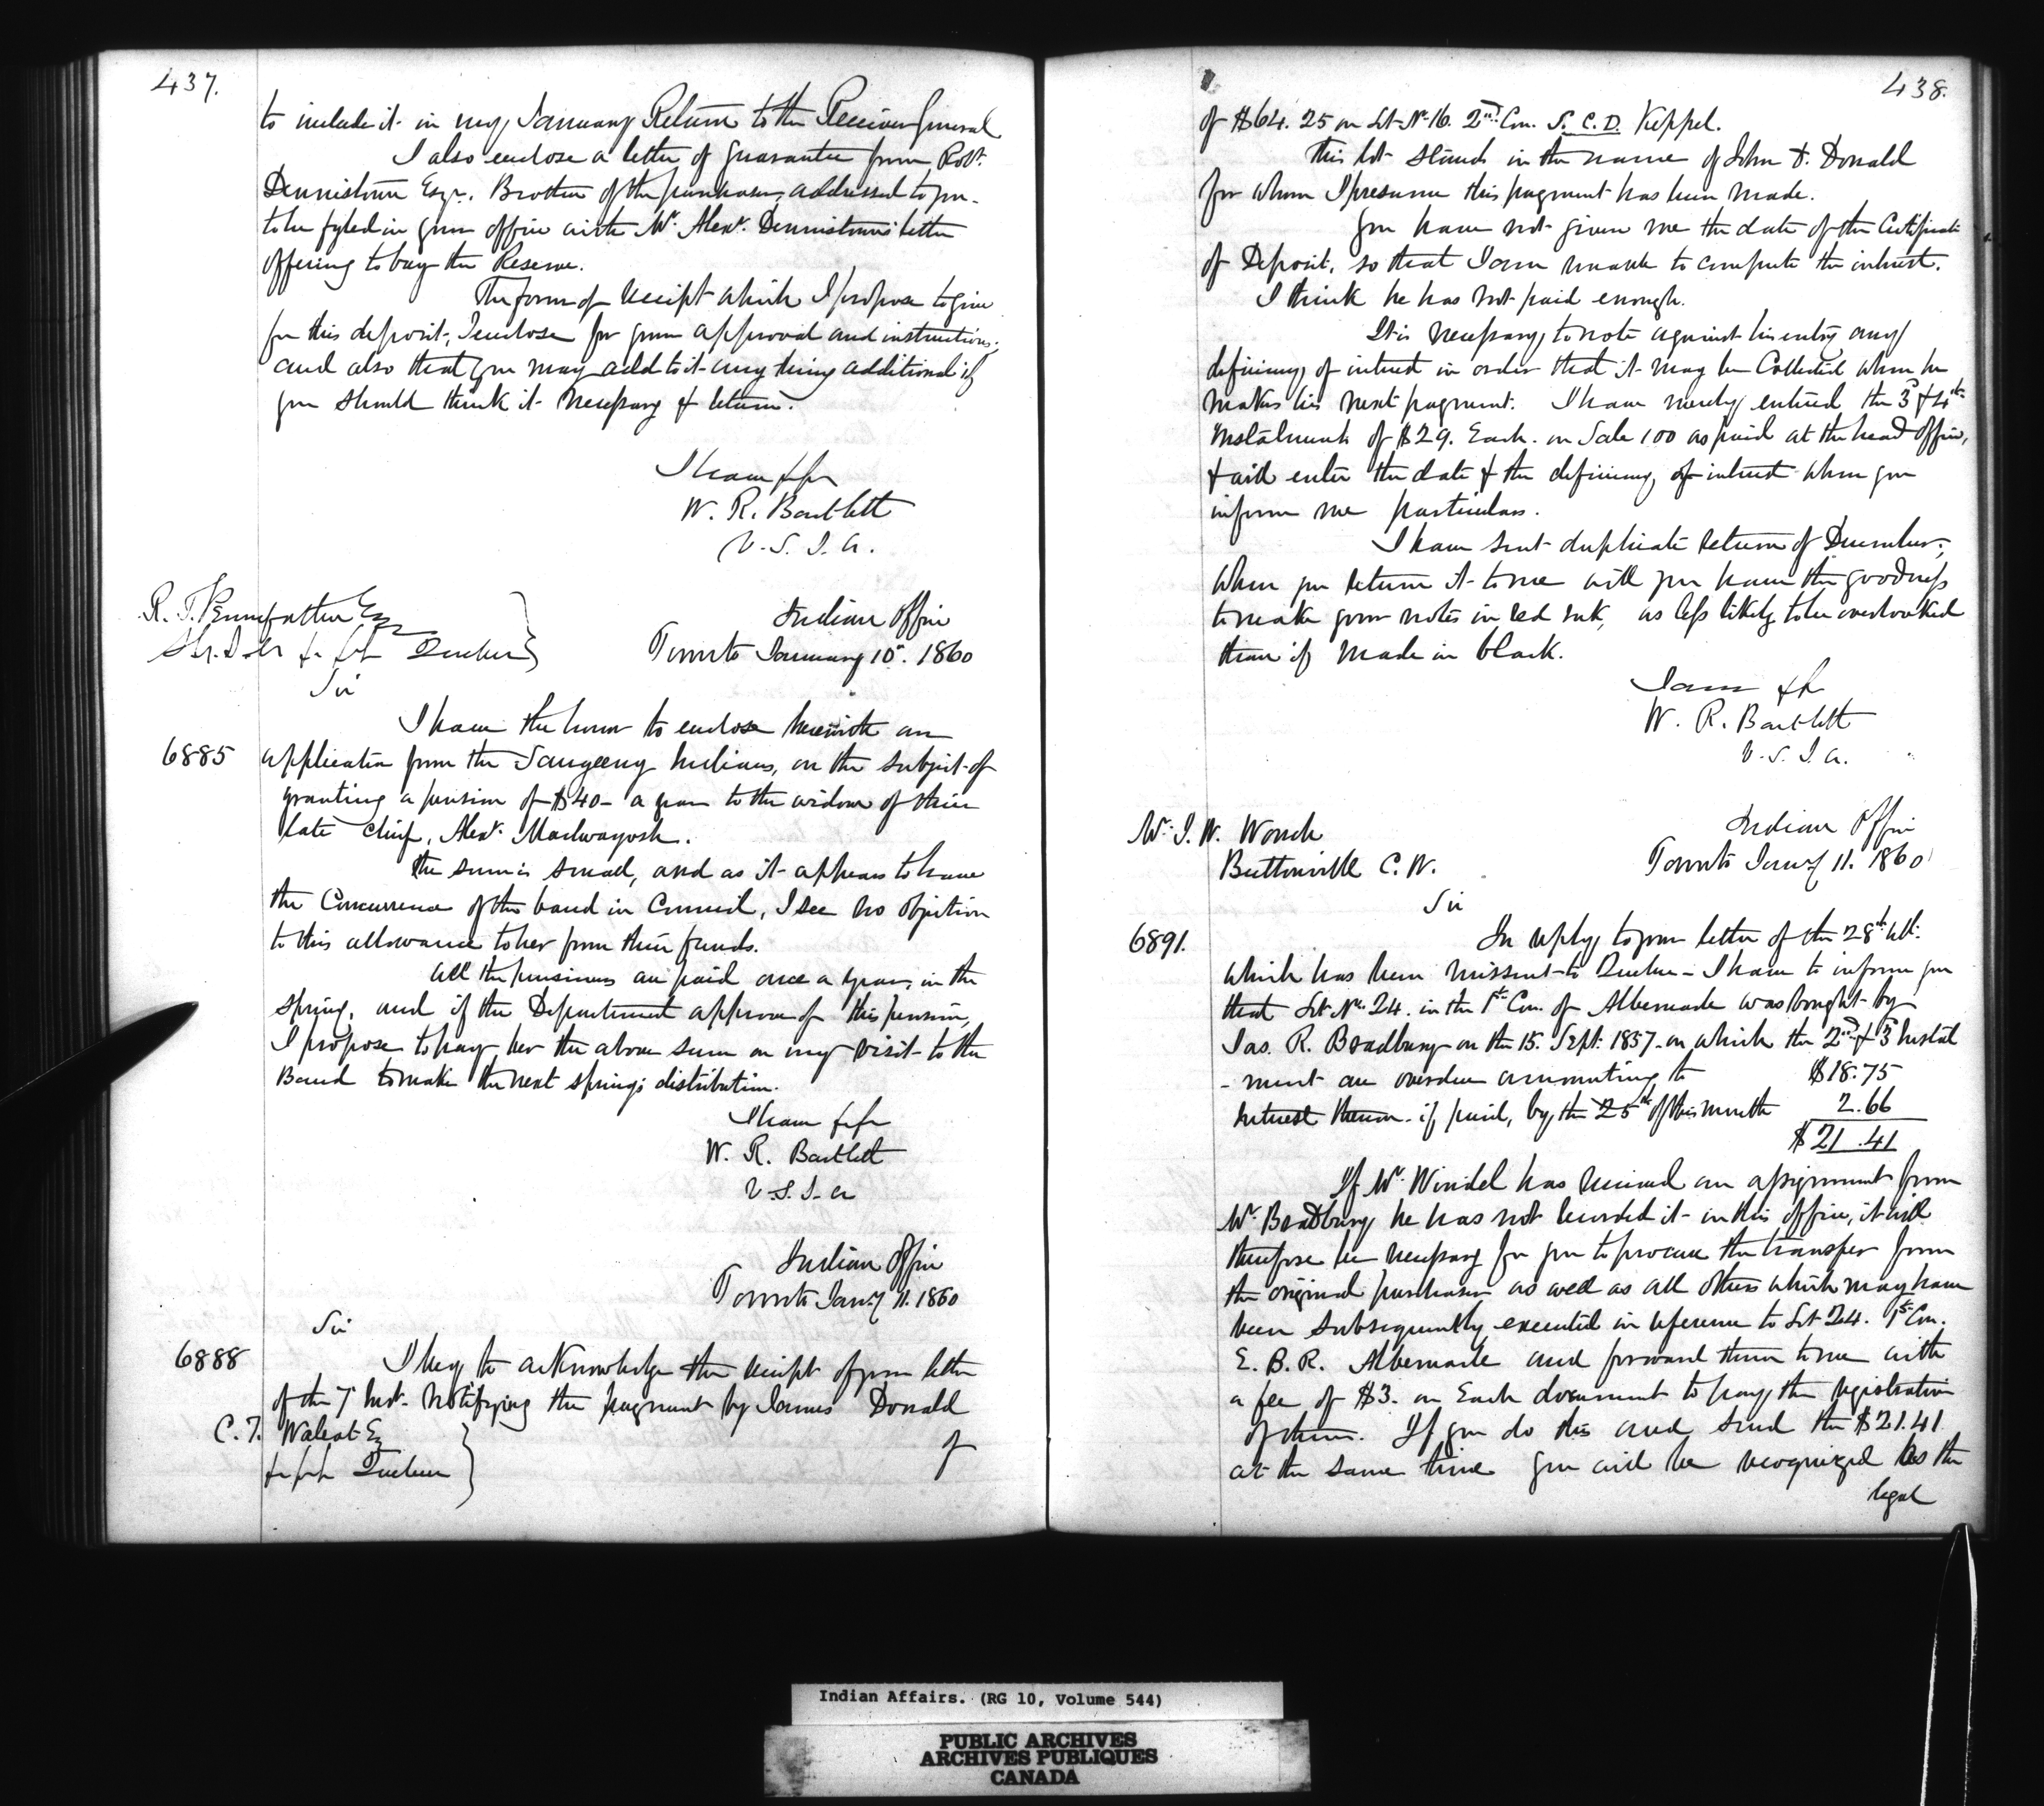 437.
to include it in my January Return to the Receiver General
I also enclose a letter of guarantee from Robt.
Dennistoun Esqr. Brother of the purchaser, addressed to you
to be fyled in your office with Mr. Alexr. Dennistoun's letter
offering to buy the Reserve.
The form of receipt which I propose to give
for this deposit, I enclose for your approval and instructions,
and also that you may add to it any thing additional if
you should think it necessary & return.
I have &c &c
W. R. Bartlett
V. S. I. A.
R. T. Pennefather Esq
&c &c Quebec
Indian Office
Toronto January 10. 1860
Sir
I have the honor to enclose herewith an
6885 application from the Saugeeng Indians, on the subject of
granting a pension of $40 - a year to the widow of their
late Chief, Alexr. Madwayosh.
The sum is small, and as it appears to have
the Concurrence of the band in Council, I see no objection
to this allowance to her from their funds.
All the pensions are paid once a year, in the
spring, and if the Department approve of this pension,
I propose to pay her the above sum on my visit to the
Band to make the next spring's distribution.
I have &c &c
W. R. Bartlett
V. S. I. A
Indian Office
Toronto Jany 11. 1860
Sir
6888 I beg to acknowledge the receipt of your letter
of the 7 Inst. Notifying the payment by James Donald
C. T. Walcot Esq
&c &c Quebec
of
438.
of $64.25 on Lot No. 16. 2nd Con. S. C. D. Keppel.
This lot stands in the name of John T. Donald
for whom I presume this payment has been made.
You have not given me the date of the Certificate
of Deposit, so that I am unable to compute the interest.
I think he has not paid enough.
It is necessary to note against his entry any
deficiency of interest in order that it may be Collected when he
makes his next payment. I have merely entered the 3d & 4th
Instalments of $29. Each. on Sale 100 as paid at the head office,
& will enter the date & the deficiency of interest when you
inform me particulars.
I have sent duplicate return of December,
when you return it to me will you have the goodness
to make your notes in red ink, as less likely to be overlooked
than if made in black.
I am &c
W. R. Bartlett
V. S. I. A.
Mr. J. W. Wonch
Buttonville C. W.
Indian Office
Toronto Jany 11. 1860
Sir
6891. In reply to your letter of the 28th ult.
which has been missent to Quebec - I have to inform you
that Lot No. 24. in the 1st Con. of Albemarle was bought by
Jas. R. Bradbury on the 15. Sept. 1857 - on which the 2nd & 3d Instal
- ment are overdue amounting to $18.75
Interest thereon - if paid, by the 25th of this month 2.66
$21.41
If Mr. Windel has received an assignment from
Mr. Bradbury he has not recorded it in this office, it will
therefore be necessary for you to procure the transfer from
the original purchaser as well as all others which may have
been subsequently executed in reference to Lot 24. 1st Con.
E. B. R. Albemarle and forward them to me with
a fee of $3. on Each document to pay the registration
of them. If you do this and send the $21.41
at the same time you will be recognized as the
legal
Indian Affairs. (RG 10, Volume 544)
PUBLIC ARCHIVES
ARCHIVES PUBLIQUES
CANADA